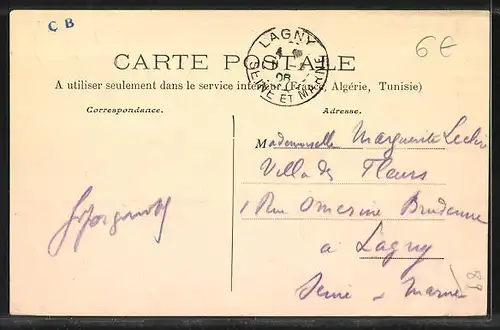 C B
LAGNY
SEINE ET MARNE
08
6€
CARTE POSTALE
A utiliser seulement dans le service intérieur (France, Algérie, Tunisie)
Correspondance.
Adresse.
Mademoiselle Marguerite
Villa des Fleurs
1 Rue
à Lagny
Seine - Marne
89